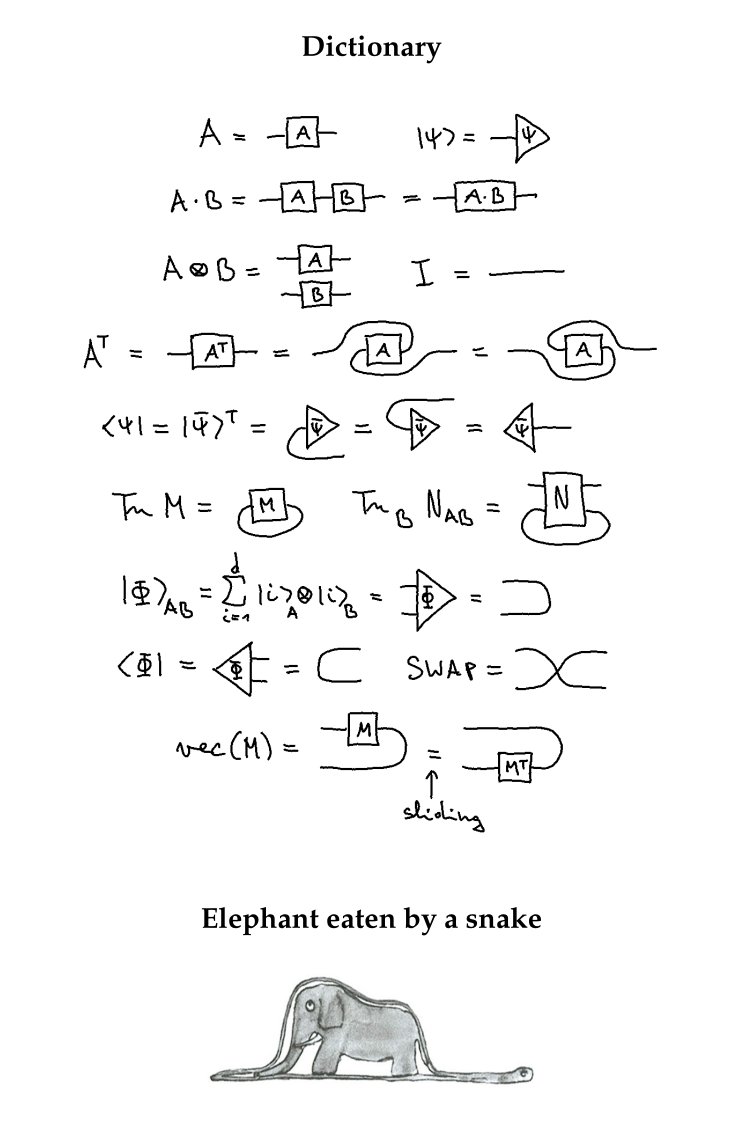 Dictionary
A = A |ψ⟩ = ψ
A · B = A B = A·B
A ⊗ B = A B I =
Aᵀ = Aᵀ = A = A
⟨ψ| = |ψ̄⟩ᵀ = ψ̄ = ψ̄ = ψ̄
Tr M = M Tr_B N_AB = N
|Φ⟩_AB = ∑_{i=1}^{d} |i⟩_A ⊗ |i⟩_B = Φ =
⟨Φ| = Φ = SWAP =
vec(M) = M = Mᵀ
sliding
Elephant eaten by a snake